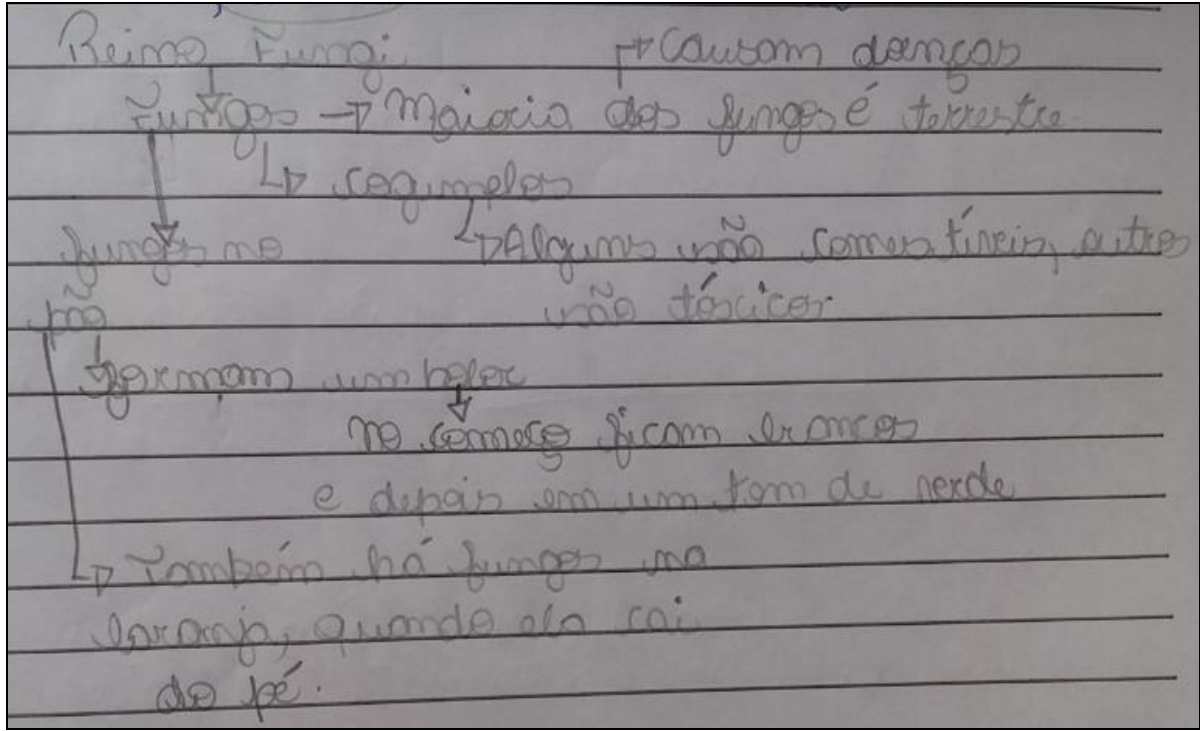 Reino Fungi → Causam doenças
Fungos → Maioria dos fungos é terrestre
↳ cogumelos
fungos no ↳ Alguns são comestíveis, outros
pão são tóxicos
formam um bolor
no começo ficam brancos
e depois em um tom de verde
↳ Também há fungos na
laranja, quando ela cai
do pé.